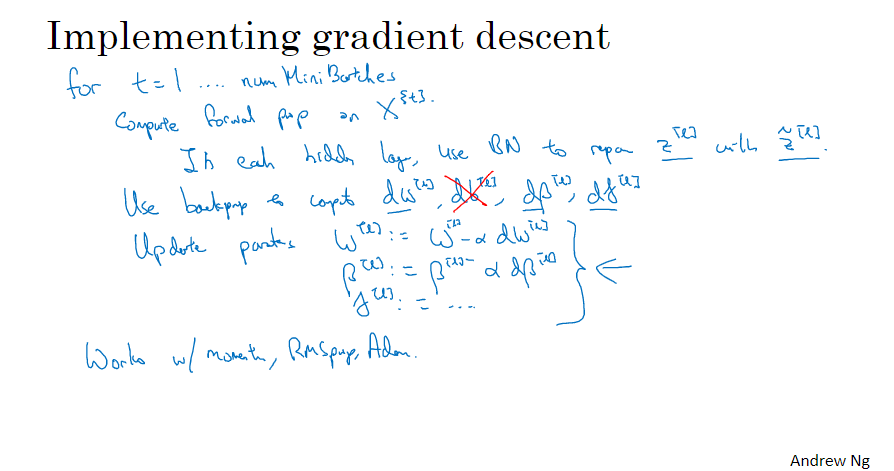 Implementing gradient descent
for t=1 .... num Mini Batches
Compute forwal pop on X^{t}.
In eah hiddn lay, use BN to repar z^[l] with z̃^[l].
Use backprop to compt dw^[l], db^[l], dβ^[l], dγ^[l]
Update parates W^[l] := W^[l] - α dw^[l]
β^[l] := β^[l] - α dβ^[l]
γ^[l] := ....
Works w/ momentm, RMSprop, Adam.
Andrew Ng